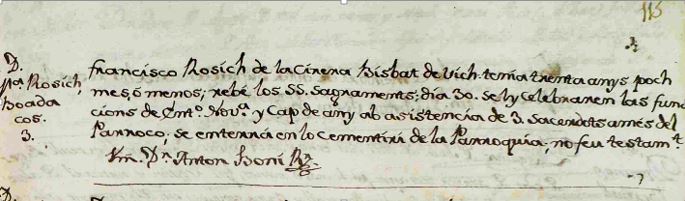 115
D.
fran.co Rosich,
Boada
cos.
3.
francisco Rosich de la Cirera Bisbat de Vich. tenia trenta anys poch
mes, ó menos; rebé los SS. Sagraments; dia 30. se ly celebraren las fun
cions de Ent.o Nov.a y Cap de any ab asistencia de 3. Sacerdots á mes del
Parroco, se enterrá en lo cementiri de la Parroquia; no feu testam.t
Anton Boni R.r